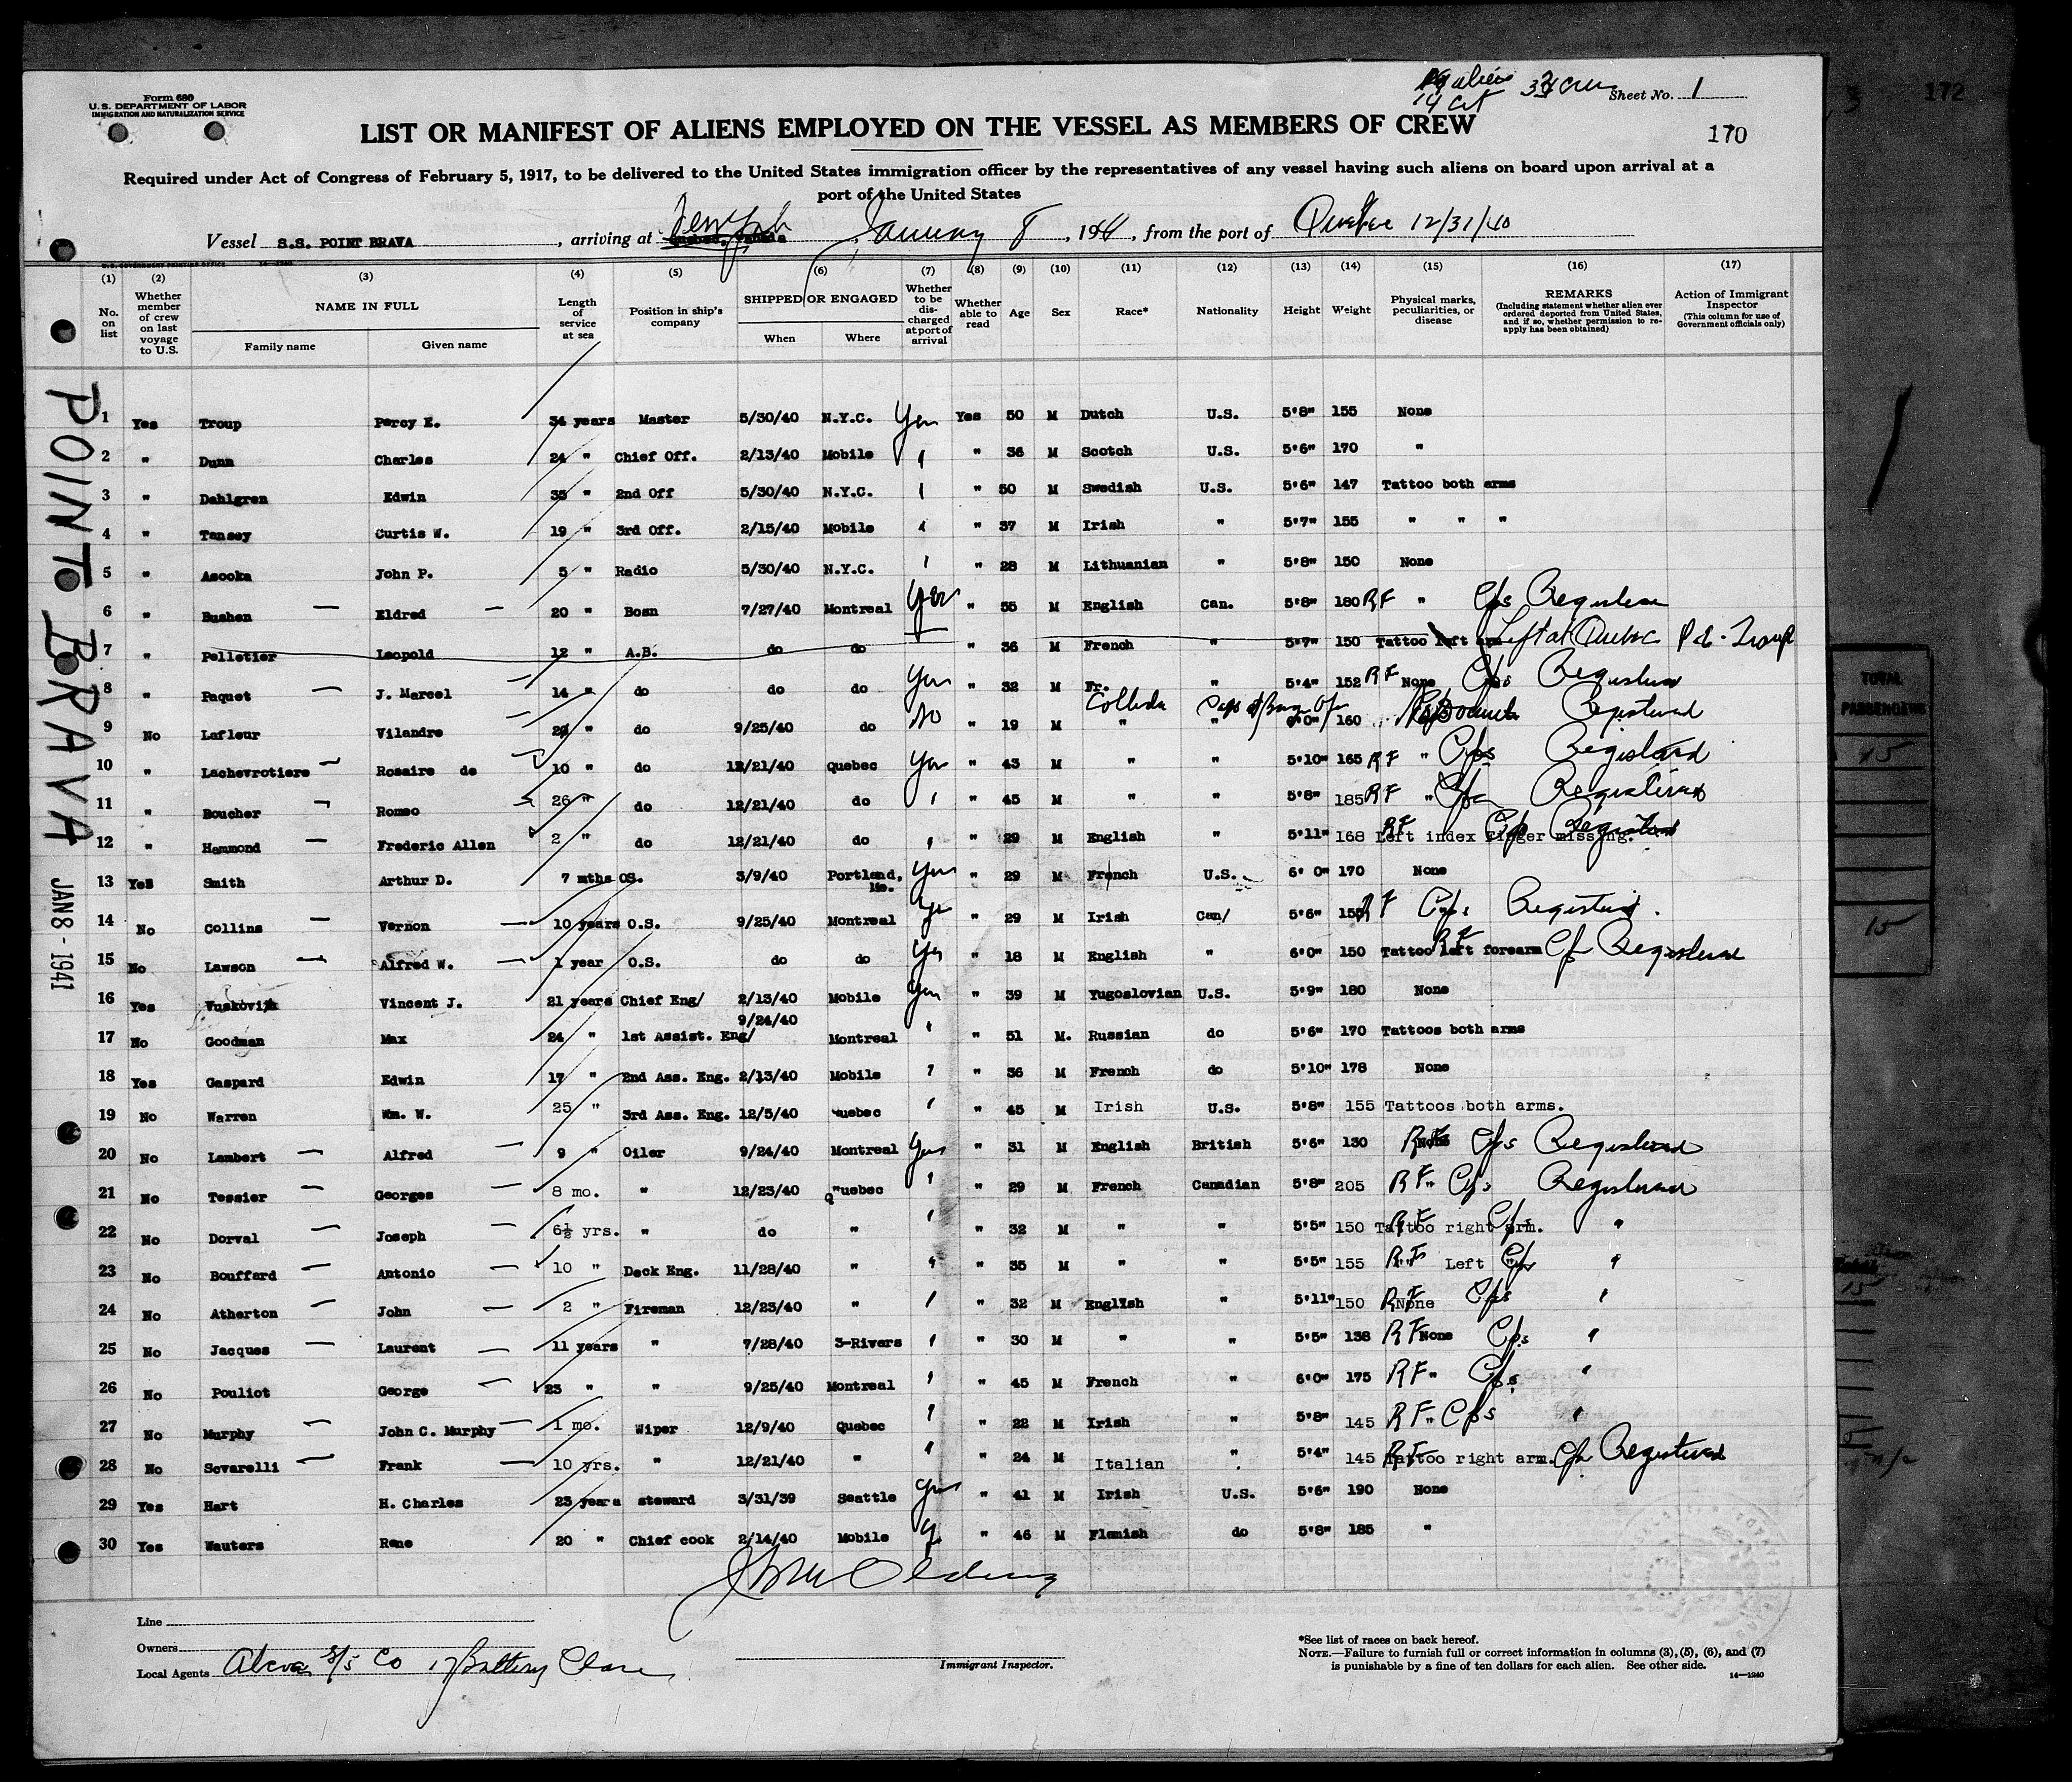 Form 680
U.S. DEPARTMENT OF LABOR
IMMIGRATION AND NATURALIZATION SERVICE
Sheet No. 1
172
170
LIST OR MANIFEST OF ALIENS EMPLOYED ON THE VESSEL AS MEMBERS OF CREW
Required under Act of Congress of February 5, 1917, to be delivered to the United States immigration officer by the representatives of any vessel having such aliens on board upon arrival at a
port of the United States
Vessel S.S. POINT BRAVA, arriving at January 8, 1941, from the port of Quebec 12/31/40
(1) (2) (3) (4) (5) (6) (7) (8) (9) (10) (11) (12) (13) (14) (15) (16) (17)
No. on list
Whether member of crew on last voyage to U.S.
NAME IN FULL
Family name
Given name
Length of service at sea
Position in ship's company
SHIPPED OR ENGAGED
When
Where
Whether to be discharged at port of arrival
Whether able to read
Age
Sex
Race*
Nationality
Height
Weight
Physical marks, peculiarities, or disease
REMARKS
(Including statement whether alien ever ordered deported from United States, and if so, whether permission to reapply has been obtained)
Action of Immigrant Inspector
(This column for use of Government officials only)
1 Yes Troup Percy E. 34 years Master 5/30/40 N.Y.C. Yes Yes 50 M Dutch U.S. 5'8" 155 None
2 " Dunn Charles 24 " Chief Off. 2/13/40 Mobile " " 36 M Scotch U.S. 5'6" 170 "
3 " Dahlgren Edwin 35 " 2nd Off 5/30/40 N.Y.C. " " 50 M Swedish U.S. 5'6" 147 Tattoo both arms
4 " Tansey Curtis W. 19 " 3rd Off. 2/15/40 Mobile " " 37 M Irish " 5'7" 155 " " "
5 " Asooka John P. 5 " Radio 5/30/40 N.Y.C. " " 28 M Lithuanian " 5'8" 150 None
6 " Bushen Eldred 20 " Bosn 7/27/40 Montreal Yes " 55 M English Can. 5'8" 180 RF "
7 " Pelletier Leopold 12 " A.B. do do " 36 M French " 5'7" 150 Tattoo left arm Left at Quebec
8 " Paquet J. Marcel 14 " do do do Yes " 32 M Fr. " 5'4" 152 RF None Registered
9 No Lafleur Vilandre " do 9/25/40 do No " 19 M " " 6'0" 160 Registered
10 " Lachevrotiere Rosaire de 10 " do 12/21/40 Quebec Yes " 43 M " " 5'10" 165 RF " Registered
11 " Boucher Romeo 26 " do 12/21/40 do " " 45 M " " 5'8" 185 RF " Registered
12 " Hammond Frederic Allen 2 " do 12/21/40 do " " 29 M English " 5'11" 168 RF Left index finger missing. Registered
13 Yes Smith Arthur D. 7 mths OS. 3/9/40 Portland, Me. Yes " 29 M French U.S. 6' 0" 170 None
14 No Collins Vernon 10 years O.S. 9/25/40 Montreal Yes " 29 M Irish Can/ 5'6" RF Registered.
15 No Lawson Alfred W. 1 year O.S. do do Yes " 18 M English " 6'0" 150 Tattoo left forearm RF Registered
16 Yes Vincent J. 21 years Chief Eng/ 2/13/40 Mobile Yes " 39 M Yugoslovian U.S. 5'9" 180 None
17 No Goodman Max 24 " 1st Assist. Eng/ 9/24/40 Montreal " " 51 M. Russian do 5'6" 170 Tattoos both arms
18 Yes Gaspard Edwin 17 " 2nd Ass. Eng. 2/13/40 Mobile " " 36 M French do 5'10" 178 None
19 No Warren Wm. W. 25 " 3rd Ass. Eng. 12/5/40 Quebec " " 45 M Irish U.S. 5'8" 155 Tattoos both arms.
20 No Lambert Alfred 9 " Oiler 9/24/40 Montreal Yes " 31 M English British 5'6" 130 RF None Registered
21 No Tessier Georges 8 mo. " 12/23/40 Quebec " " 29 M French Canadian 5'8" 205 RF " Registered
22 No Dorval Joseph 6½ yrs. " do " " " 32 M " " 5'5" 150 RF Tattoo right arm. "
23 No Bouffard Antonio 10 " Deck Eng. 11/28/40 " " " 35 M " " 5'5" 155 RF " Left " "
24 No Atherton John 2 " Fireman 12/23/40 " " " 32 M English " 5'11" 150 RF None "
25 No Jacques Laurent 11 years " 7/28/40 3-Rivers " " 30 M " " 5'5" 138 RF None "
26 No Pouliot George 23 " " 9/25/40 Montreal " " 45 M French " 6'0" 175 RF " "
27 No Murphy John C. Murphy 1 mo. Wiper 12/9/40 Quebec " " 22 M Irish " 5'8" 145 RF " "
28 No Sovarelli Frank 10 yrs. " 12/21/40 " " " 24 M Italian " 5'4" 145 RF Tattoo right arm. Registered
29 Yes Hart H. Charles 23 years steward 3/31/39 Seattle Yes " 41 M Irish U.S. 5'6" 190 None
30 Yes Wauters Rene 20 " Chief cook 2/14/40 Mobile " 46 M Flemish do 5'8" 185 "
POINT BRAVA
JAN 8 - 1941
Line
Owners
Local Agents Alcoa S/S Co 17 Battery Place
Immigrant Inspector.
*See list of races on back hereof.
NOTE.—Failure to furnish full or correct information in columns (3), (5), (6), and (7)
is punishable by a fine of ten dollars for each alien. See other side.
14—1240
TOTAL
PASSENGERS
15